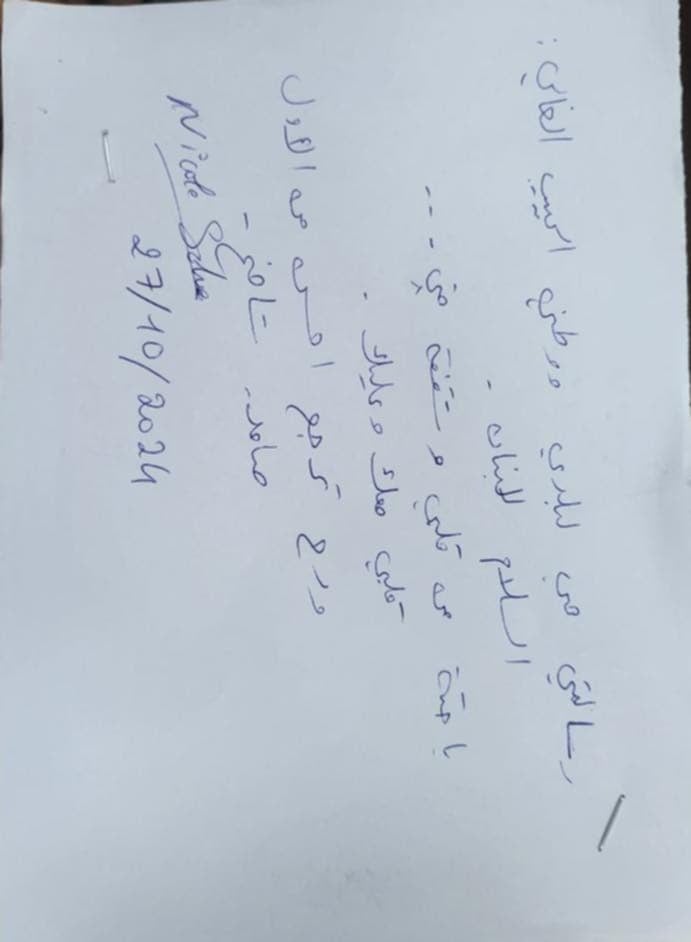 رسالتي هي لبلدي ووطني الحبيب الغالي :
السلام للبنان -
يا حتة من قلبي وشقفة مني ...
قلبي معك وعليك .
ورح ترجع احسن من الاول
صامد - شامخ -
Nicole Saba
27/10/2024